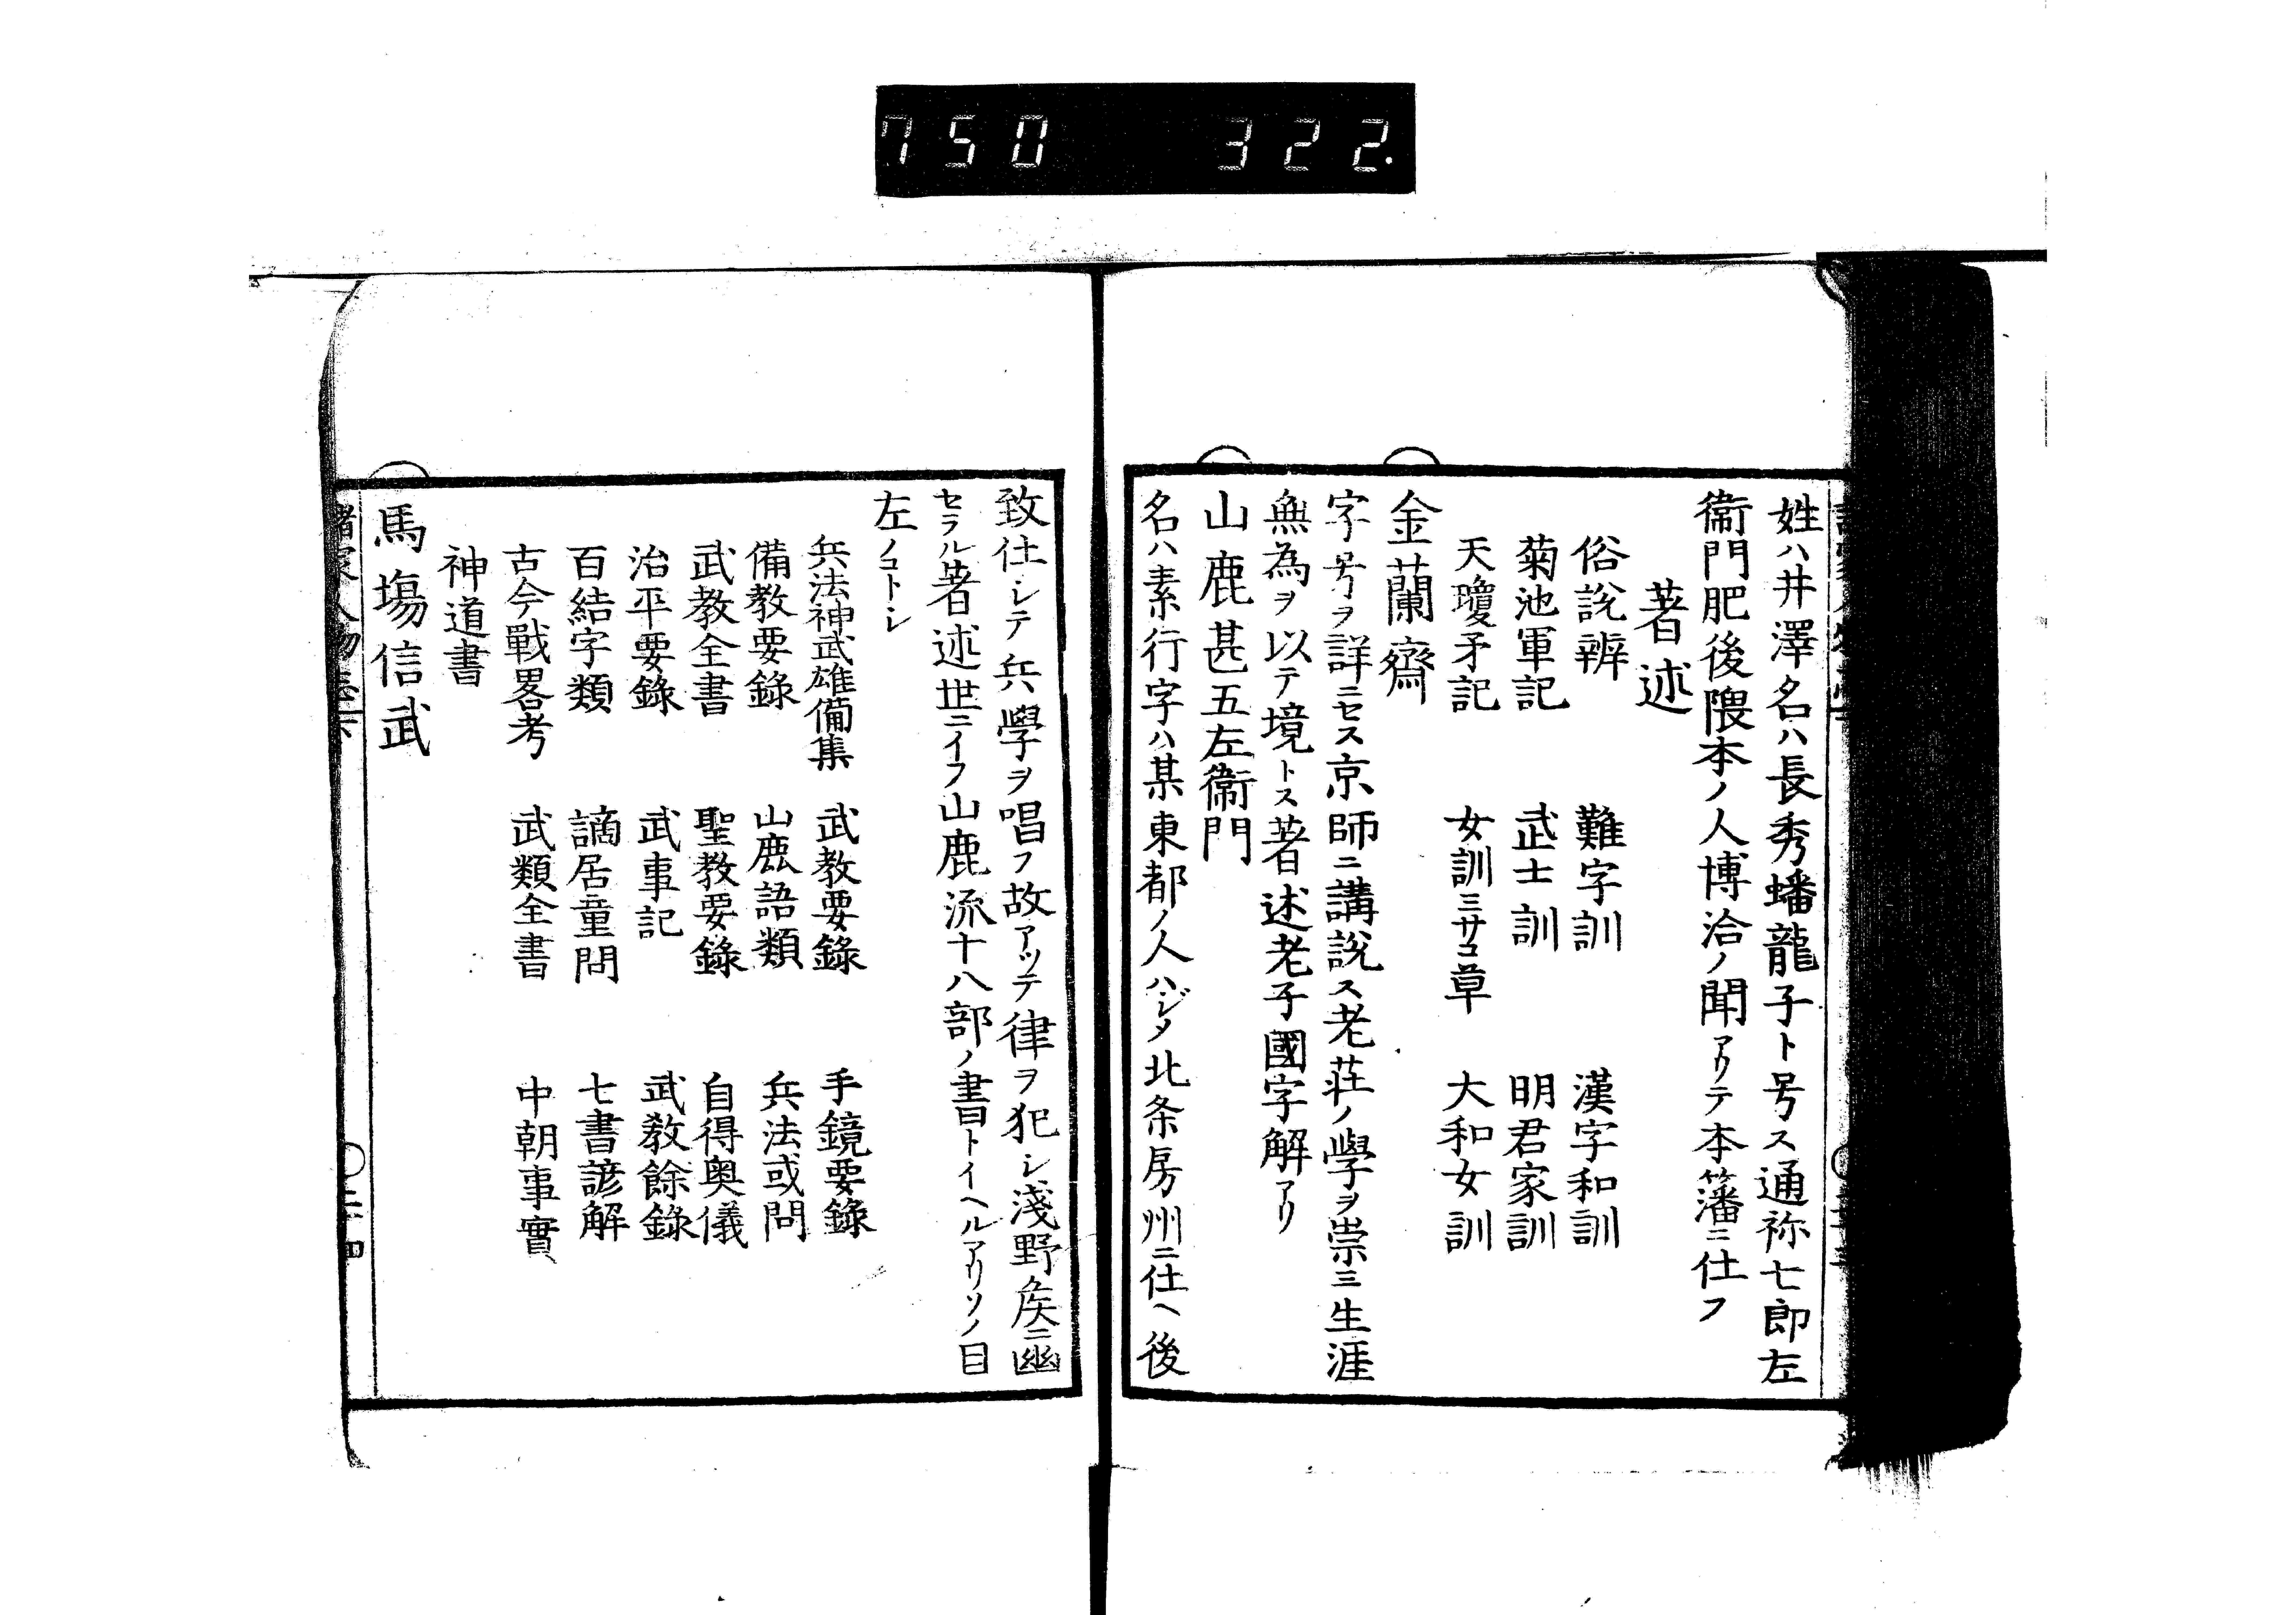 750 322.
姓ハ井澤名ハ長秀蟠龍子ト号ス通祢七郎左
衞門肥後隈本ノ人博洽ノ聞アリテ本藩ニ仕フ
著述
俗說辨 難字訓 漢字和訓
菊池軍記 武士訓 明君家訓
天瓊矛記 女訓ミサコ草 大和女訓
金蘭齋
字号ヲ詳ニセス京師ニ講說ス老荘ノ學ヲ崇ミ生涯
無為ヲ以テ境トス著述老子國字解アリ
山鹿甚五左衞門
名ハ素行字ハ某東都ノ人ハジメ北条房州ニ仕ヘ後
致仕シテ兵學ヲ唱フ故アツテ律ヲ犯シ淺野矦ニ幽
セラル著述世ニイフ山鹿流十八部ノ書トイヘルアリソノ目
左ノコトシ
兵法神武雄備集 武教要錄 手鏡要錄
備教要錄 山鹿語類 兵法或問
武教全書 聖教要錄 自得奥儀
治平要錄 武事記 武教餘錄
百結字類 謫居童問 七書諺解
古今戰畧考 武類全書 中朝事實
神道書
馬場信武
諸家人物志下 〇二十四